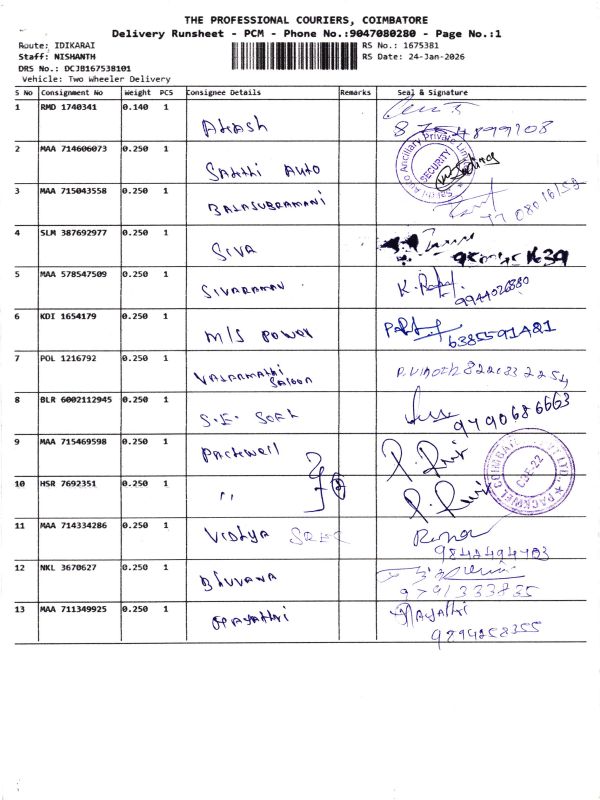 THE PROFESSIONAL COURIERS, COIMBATORE
Delivery Runsheet - PCM - Phone No.:9047080280 - Page No.:1
Route: IDIKARAI
Staff: NISHANTH
DRS No.: DCJB167538101
Vehicle: Two Wheeler Delivery
RS No.: 1675381
RS Date: 24-Jan-2026
S No Consignment No Weight PCS Consignee Details Remarks Seal & Signature
1 RMD 1740341 0.140 1 Akash
2 MAA 714606073 0.250 1 Sakthi Auto
SECURITY
3 MAA 715043558 0.250 1 BALASUBRAMANI
4 SLM 387692977 0.250 1 SIVA
5 MAA 578547509 0.250 1 SIVARAMAN 9944026880
6 KDI 1654179 0.250 1 M/S POWER 6385591481
7 POL 1216792 0.250 1
8 BLR 6002112945 0.250 1 9790686663
9 MAA 715469598 0.250 1 Packwell
10 HSR 7692351 0.250 1 "
11 MAA 714334286 0.250 1 Vidya
9842494403
12 NKL 3670627 0.250 1 Bhuvana
9791333835
13 MAA 711349925 0.250 1 Gayathri
9294258355